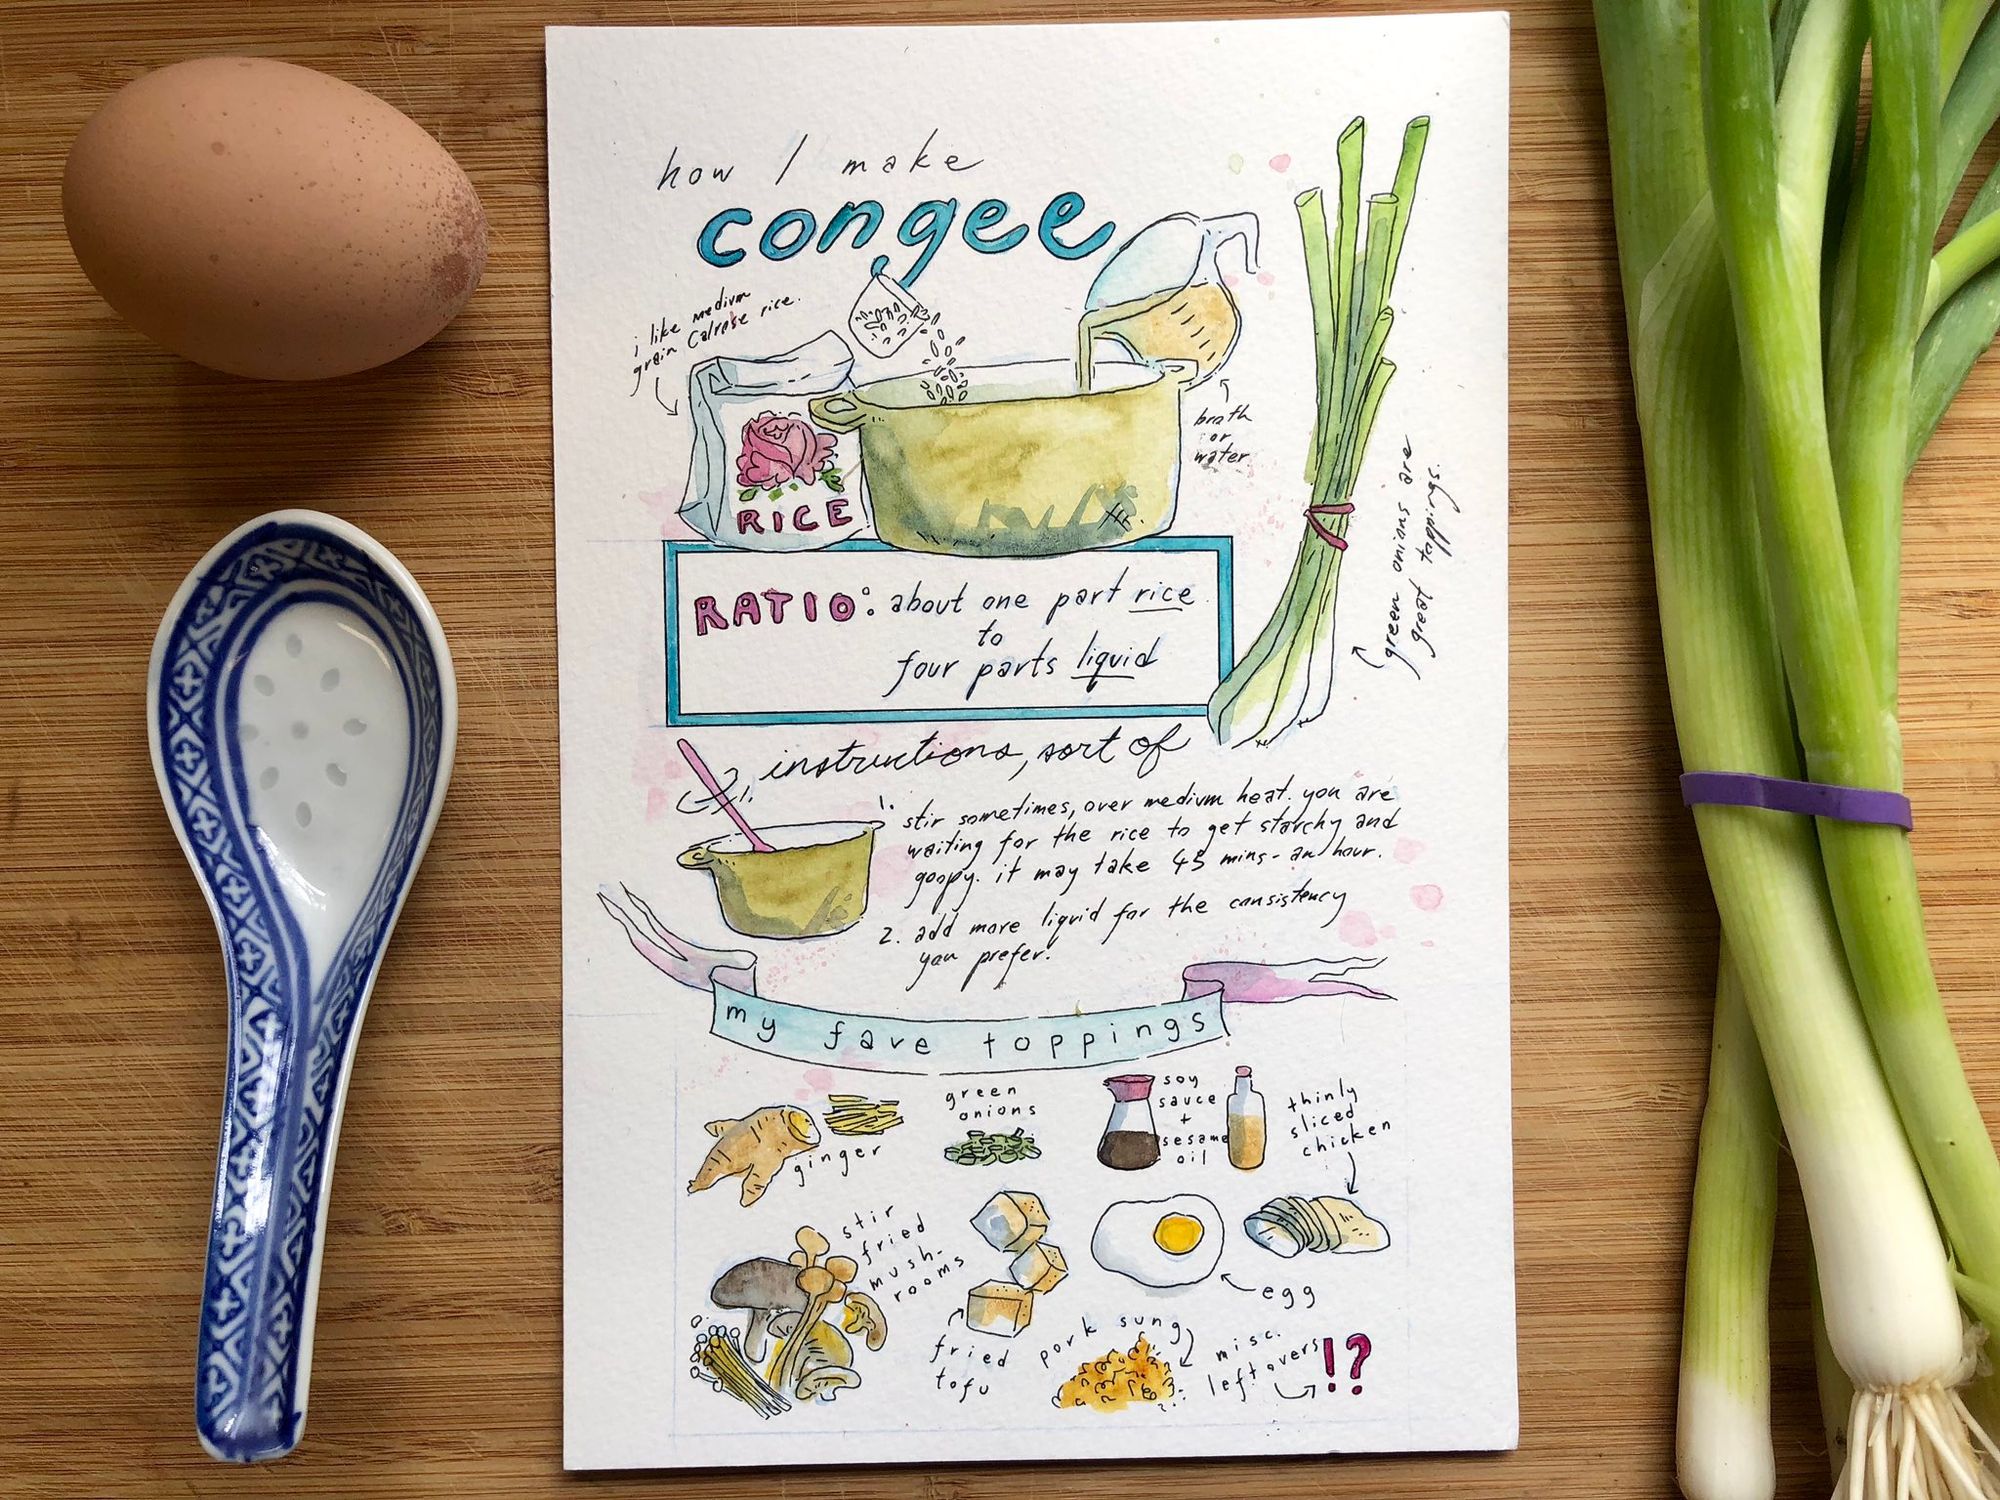 how I make
congee
i like medium
grain Calrose rice.
RICE
broth
or
water
green onions are
great toppings.
RATIO: about one part rice
to
four parts liquid
instructions, sort of
1. stir sometimes, over medium heat. you are
waiting for the rice to get starchy and
goopy. it may take 45 mins - an hour.
2. add more liquid for the consistency
you prefer.
my fave toppings
ginger
green
onions
soy
sauce
+
sesame
oil
thinly
sliced
chicken
stir
fried
mush-
rooms
fried
tofu
egg
pork sung
misc.
leftovers
!?